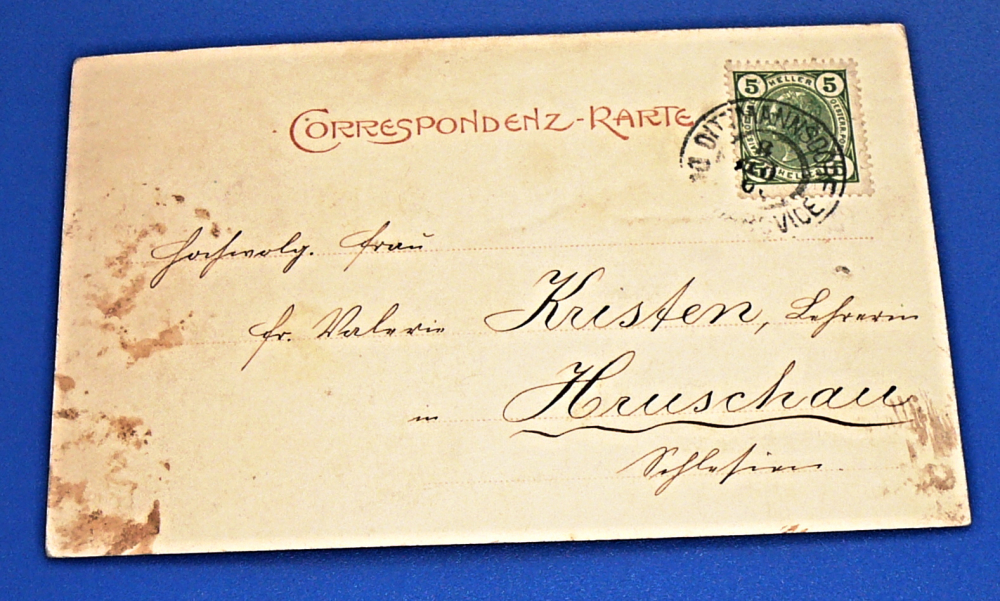 CORRESPONDENZ-KARTE
5 HELLER 5
HELLER
DITTMANNSDORF
Hochwolg. Frau
fr. Valerie Kristen, Lehrerin
in Hruschau
Schlesien.